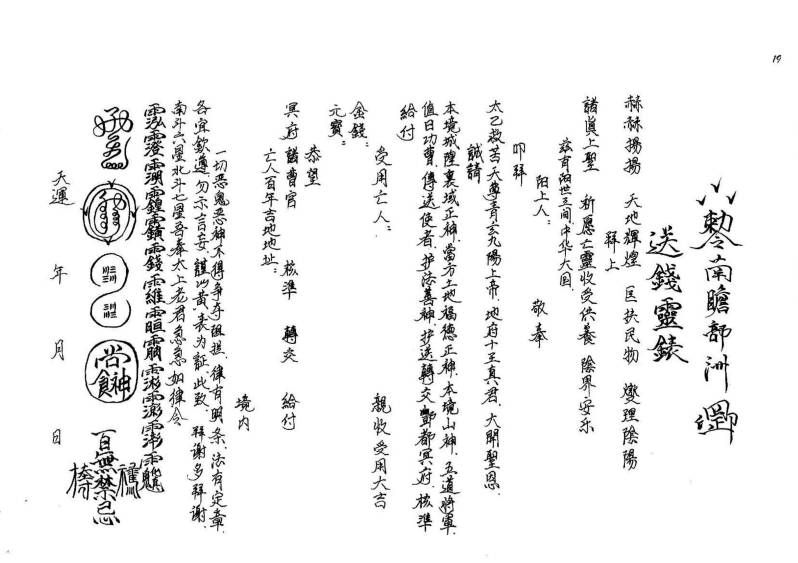 19
勅令南瞻部洲
送錢靈錶
赫赫揚揚 天地輝煌 匡扶民物 燮理陰陽
拜上
諸真上聖 祈愿亡靈收受供養 陰界安乐
兹有阳世三间,中华大国
阳上人: 敬奉
叩拜
太乙救苦天尊青玄九陽上帝,地府十王真君,大開聖恩,
誠請
本境城隍裏域正神,當方土地福德正神,本境山神,五道將軍,
值日功曹,傳送使者,护法善神,护送轉交酆都冥府,核準
給付
受用亡人: 親收受用大吉
金錢:
元寶:
恭望
冥府諸曹官 核準 轉交 給付
亡人百年吉地地址: 境内
一切恶鬼恶神不得争夺阻拦,律有明条,法有定章,
各宜欽遵勿示言妄,謹以黄表为証此致, 拜謝多拜謝,
南斗六星北斗七星吾奉太上老君急急如律令
尚食神
百無禁忌
天運 年 月 日